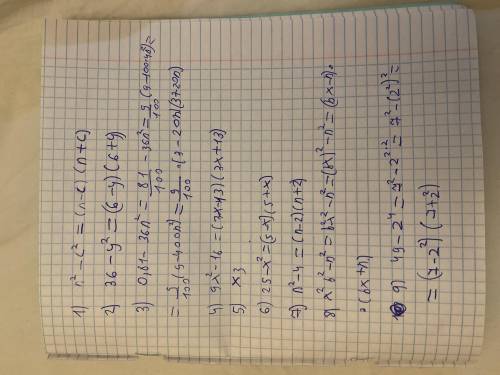 1) n² - c² = (n-c) (n+c)
2) 36 - y² = (6-y) (6+y)
3) 0,81 - 36n² = 81/100 - 36n² = 9/100 (9-400n²) =
= 9/100 (9-400n²) = 9/100 · (3-20n)(3+20n)
4) 9x² - 16 =
5) x 3
6) 25 - x² = (5-x) (5+x)
7) n² - 4 = (n-2) (n+2)
8) x² b² - n² = b²x² - n² = (bx)² - n² = (bx-n) ·
· (bx+n)
9) 49 - 2⁴ = 7² - 2²·² = 7² - (2²)² =
= (7-2²) (7+2²)